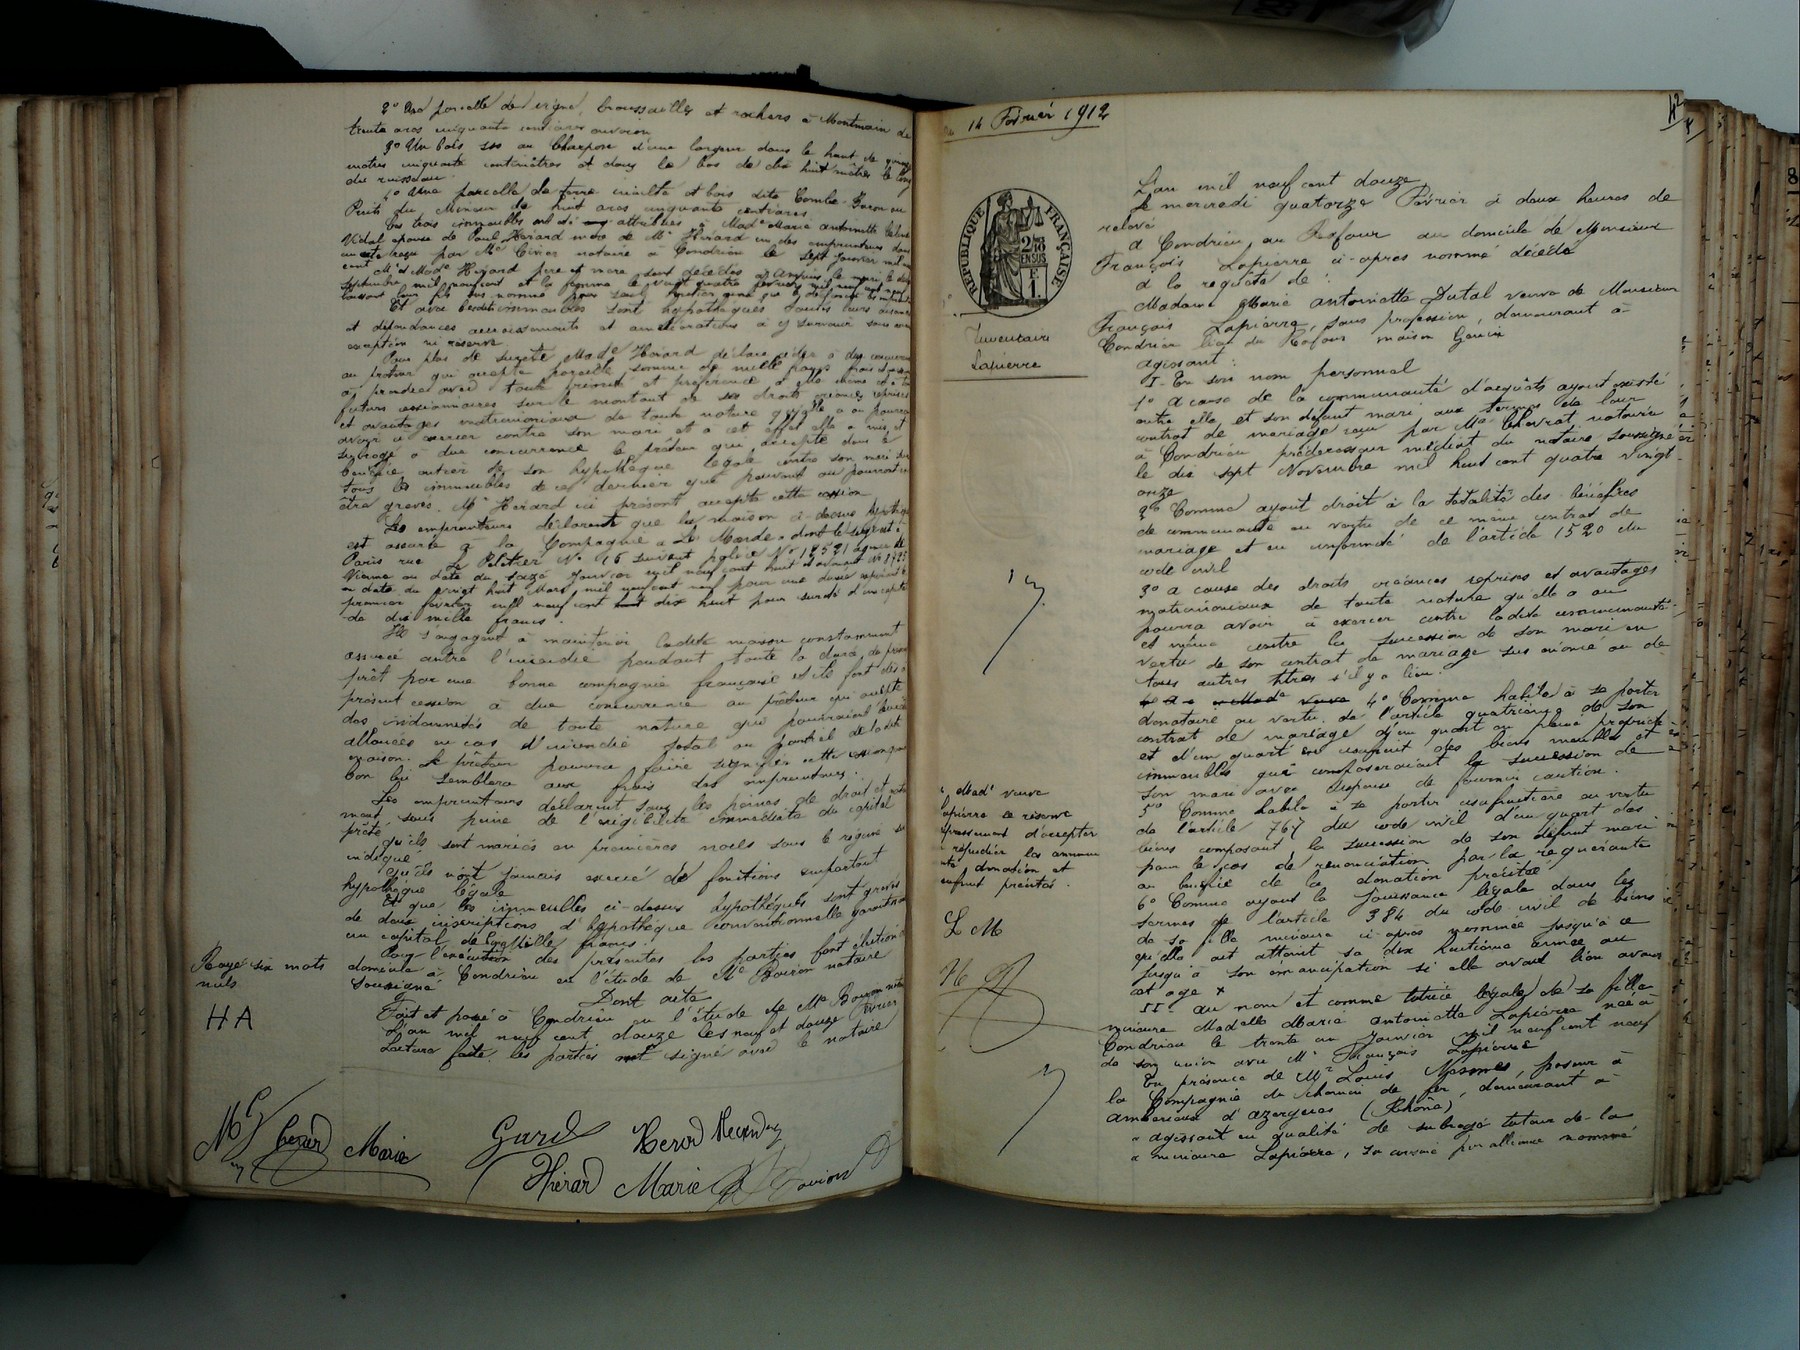 2° Une parcelle de vigne, broussailles et rochers à Montmain de
trente ares cinquante centiares environ
3° Un bois sis au Charpon d'une largeur dans le haut de
mètres cinquante centimètres et dans le bas de dix huit mètres le long
du ruisseau.
4° Une parcelle de terre inculte et bois dite Combe-Baron ou
Puits du Mineur de huit ares cinquante centiares
Ces trois immeubles ont été attribués à Made Marie Antoinette
Vidal épouse de Paul Hérard mère de Mr Hérard un des emprunteurs dans
un acte reçu par Me notaire à Condrieu le sept Janvier mil neuf
cent
Mr et Made Hérard père et mère sont décédés à Ampuis le mari le
septembre mil neuf cent et la femme le vingt quatre février mil neuf cent
laissant leur fils sus nommé pour seul héritier
Et avec lesdits immeubles sont hypothéqués toutes leurs aisances
et dépendances accroissements et améliorations à y survenir sans
exception ni réserve.
Pour plus de sureté Made Hérard déclare céder à due concurrence
au prêteur qui accepte pareille somme de mille francs
à prendre avec toute priorité et préférence à elle même et à
futurs cessionnaires sur le montant de ses droits créances reprises
et avantages matrimoniaux de toute nature qu'elle a ou pourra
avoir à exercer contre son mari et à cet effet elle a mis et
subrogé à due concurrence le prêteur qui accepte dans
l'effet entier de son hypothèque légale contre son mari sur
tous les immeubles de ce dernier qui peuvent ou pourront en
être grevés. Mr Hérard ici présent accepte cette cession
Les emprunteurs déclarent que la maison ci-dessus hypothéquée
est assurée à la Compagnie "Le Monde" dont le siège est à
Paris rue Le Peletier No 16 suivant police No 12521 agence de
Vienne en date du seize Janvier mil neuf cent huit et avenant No
en date du vingt huit Mars mil neuf cent neuf pour une durée
premier février mil neuf cent dix huit pour sureté d'un capital
de dix mille francs.
Ils s'engagent à maintenir ladite maison constamment
assurée contre l'incendie pendant toute la durée du présent
prêt par une bonne compagnie française et ils font dès à
présent cession à due concurrence au prêteur qui accepte
des indemnités de toute nature qui pourraient être
allouées en cas d'incendie total ou partiel de ladite
maison. Le prêteur pourra faire signifier cette cession quand
bon lui semblera aux frais des emprunteurs.
Les emprunteurs déclarent sous les peines de droit et
ment sous peine de l'exigibilité immédiate du capital
prêté
qu'ils sont mariés en premières noces sous le régime sus
indiqué
qu'ils n'ont jamais exercé de fonctions emportant
hypothèque légale
Et que les immeubles ci-dessus hypothéqués sont grevés
de deux inscriptions d'hypothèque conventionnelle garantissant
un capital de mille francs.
Pour l'exécution des présentes les parties font élection de
domicile à Condrieu en l'étude de Me Bouron notaire
soussigné
Dont acte
Fait et passé à Condrieu en l'étude de Me Bouron notaire
L'an mil neuf cent douze les neuf et douze Février
Lecture faite les parties ont signé avec le notaire
Rayé six mots
nuls
H A
Gerard Marie
Gard
Herard
Hérard Marie
Bouron
14 Février 1912
42
RÉPUBLIQUE FRANÇAISE
Inventaire
Lapierre
L'an mil neuf cent douze
Le mercredi quatorze Février à deux heures de
relevé
A Condrieu, au Rafour au domicile de Monsieur
François Lapierre ci-après nommé décédé
A la requête de :
Madame Marie Antoinette Dutal veuve de Monsieur
François Lapierre, sans profession, demeurant à
Condrieu lieu du Rafour maison Génin
Agissant :
I. En son nom personnel
1° A cause de la communauté d'acquêts ayant existé
entre elle et son défunt mari aux termes de leur
contrat de mariage reçu par Me Chavrat notaire
à Condrieu prédécesseur médiat du notaire soussigné
le dix sept Novembre mil huit cent quatre vingt
onze
2° Comme ayant droit à la totalité des bénéfices
de communauté en vertu de ce même contrat de
mariage et en conformité de l'article 1520 du
code civil
3° A cause des droits créances reprises et avantages
matrimoniaux de toute nature qu'elle a ou
pourra avoir à exercer contre ladite communauté
et même contre la succession de son mari en
vertu de son contrat de mariage sus énoncé ou de
tous autres titres s'il y a lieu.
4° Comme habile à se porter
donataire en vertu de l'article quatrième de son
contrat de mariage d'un quart en pleine propriété
et d'un quart en usufruit des biens meubles et
immeubles qui composeraient la succession de
son mari avec dispense de fournir caution.
5° Comme habile à se porter usufruitière en vertu
de l'article 767 du code civil d'un quart des
biens composant la succession de son défunt mari
pour le cas de renonciation par la requérante
au bénéfice de la donation précitée
6° Comme ayant la jouissance légale dans les
termes de l'article 384 du code civil de biens
de sa fille mineure ci-après nommée jusqu'à ce
qu'elle ait atteint sa dix huitième année ou
jusqu'à son émancipation si elle avait lieu avant
cet âge x
II. Au nom et comme tutrice légale de sa fille
mineure Madelle Marie Antoinette Lapierre née à
Condrieu le trente un Janvier mil neuf cent neuf
de son union avec Mr François Lapierre
En présence de Mr Louis poseur à
la Compagnie de chemin de fer, demeurant à
Amberieux d'Azergues (Rhône)
" agissant en qualité de subrogé tuteur de la
" mineure Lapierre, sa cousine par alliance nommé
Made veuve
Lapierre se réserve
expressément d'accepter
répudier les
donation et
usufruit précités.
L M